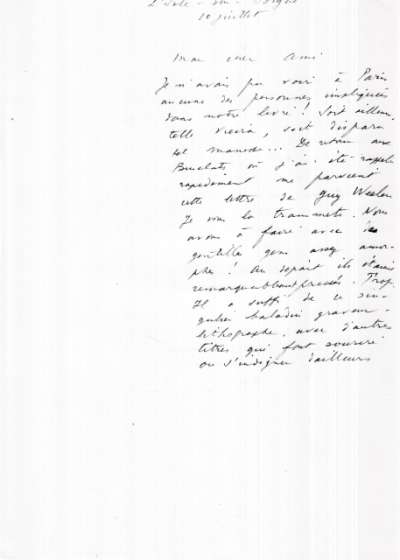 L'Isle - sur - Sorgue
10 juillet
Mon cher ami
Je n'avais pu voir à Paris
aucune des personnes impliquées
dans notre livre ! Soit ailleurs,
telle Vieira, soit disparu
De retour aux
Busclats, où j'ai été rappelé
rapidement me parvient
cette lettre de Guy Weelen
Je vous la transmets. Nous
avons à faire avec de
gentilles gens assez amor-
phes ! Au départ ils étaient
remarquablement pressés. Trop.
Il a suffi de ce sin-
gulier baladin graveur -
lithographe, avec d'autres
titres qui font sourire
ou s'indigner d'ailleurs